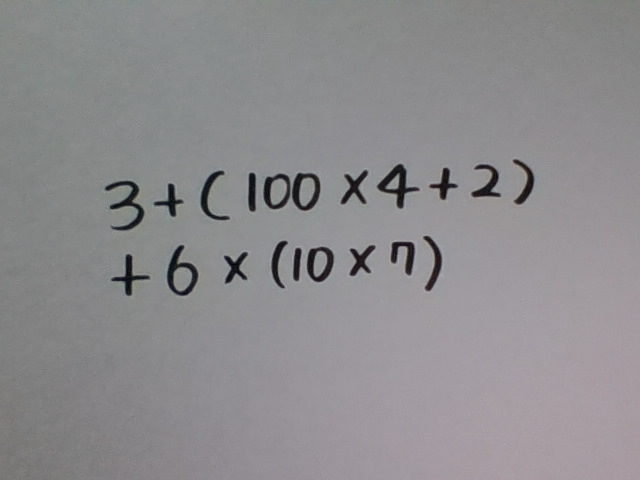 3+(100×4+2)
+6×(10×7)